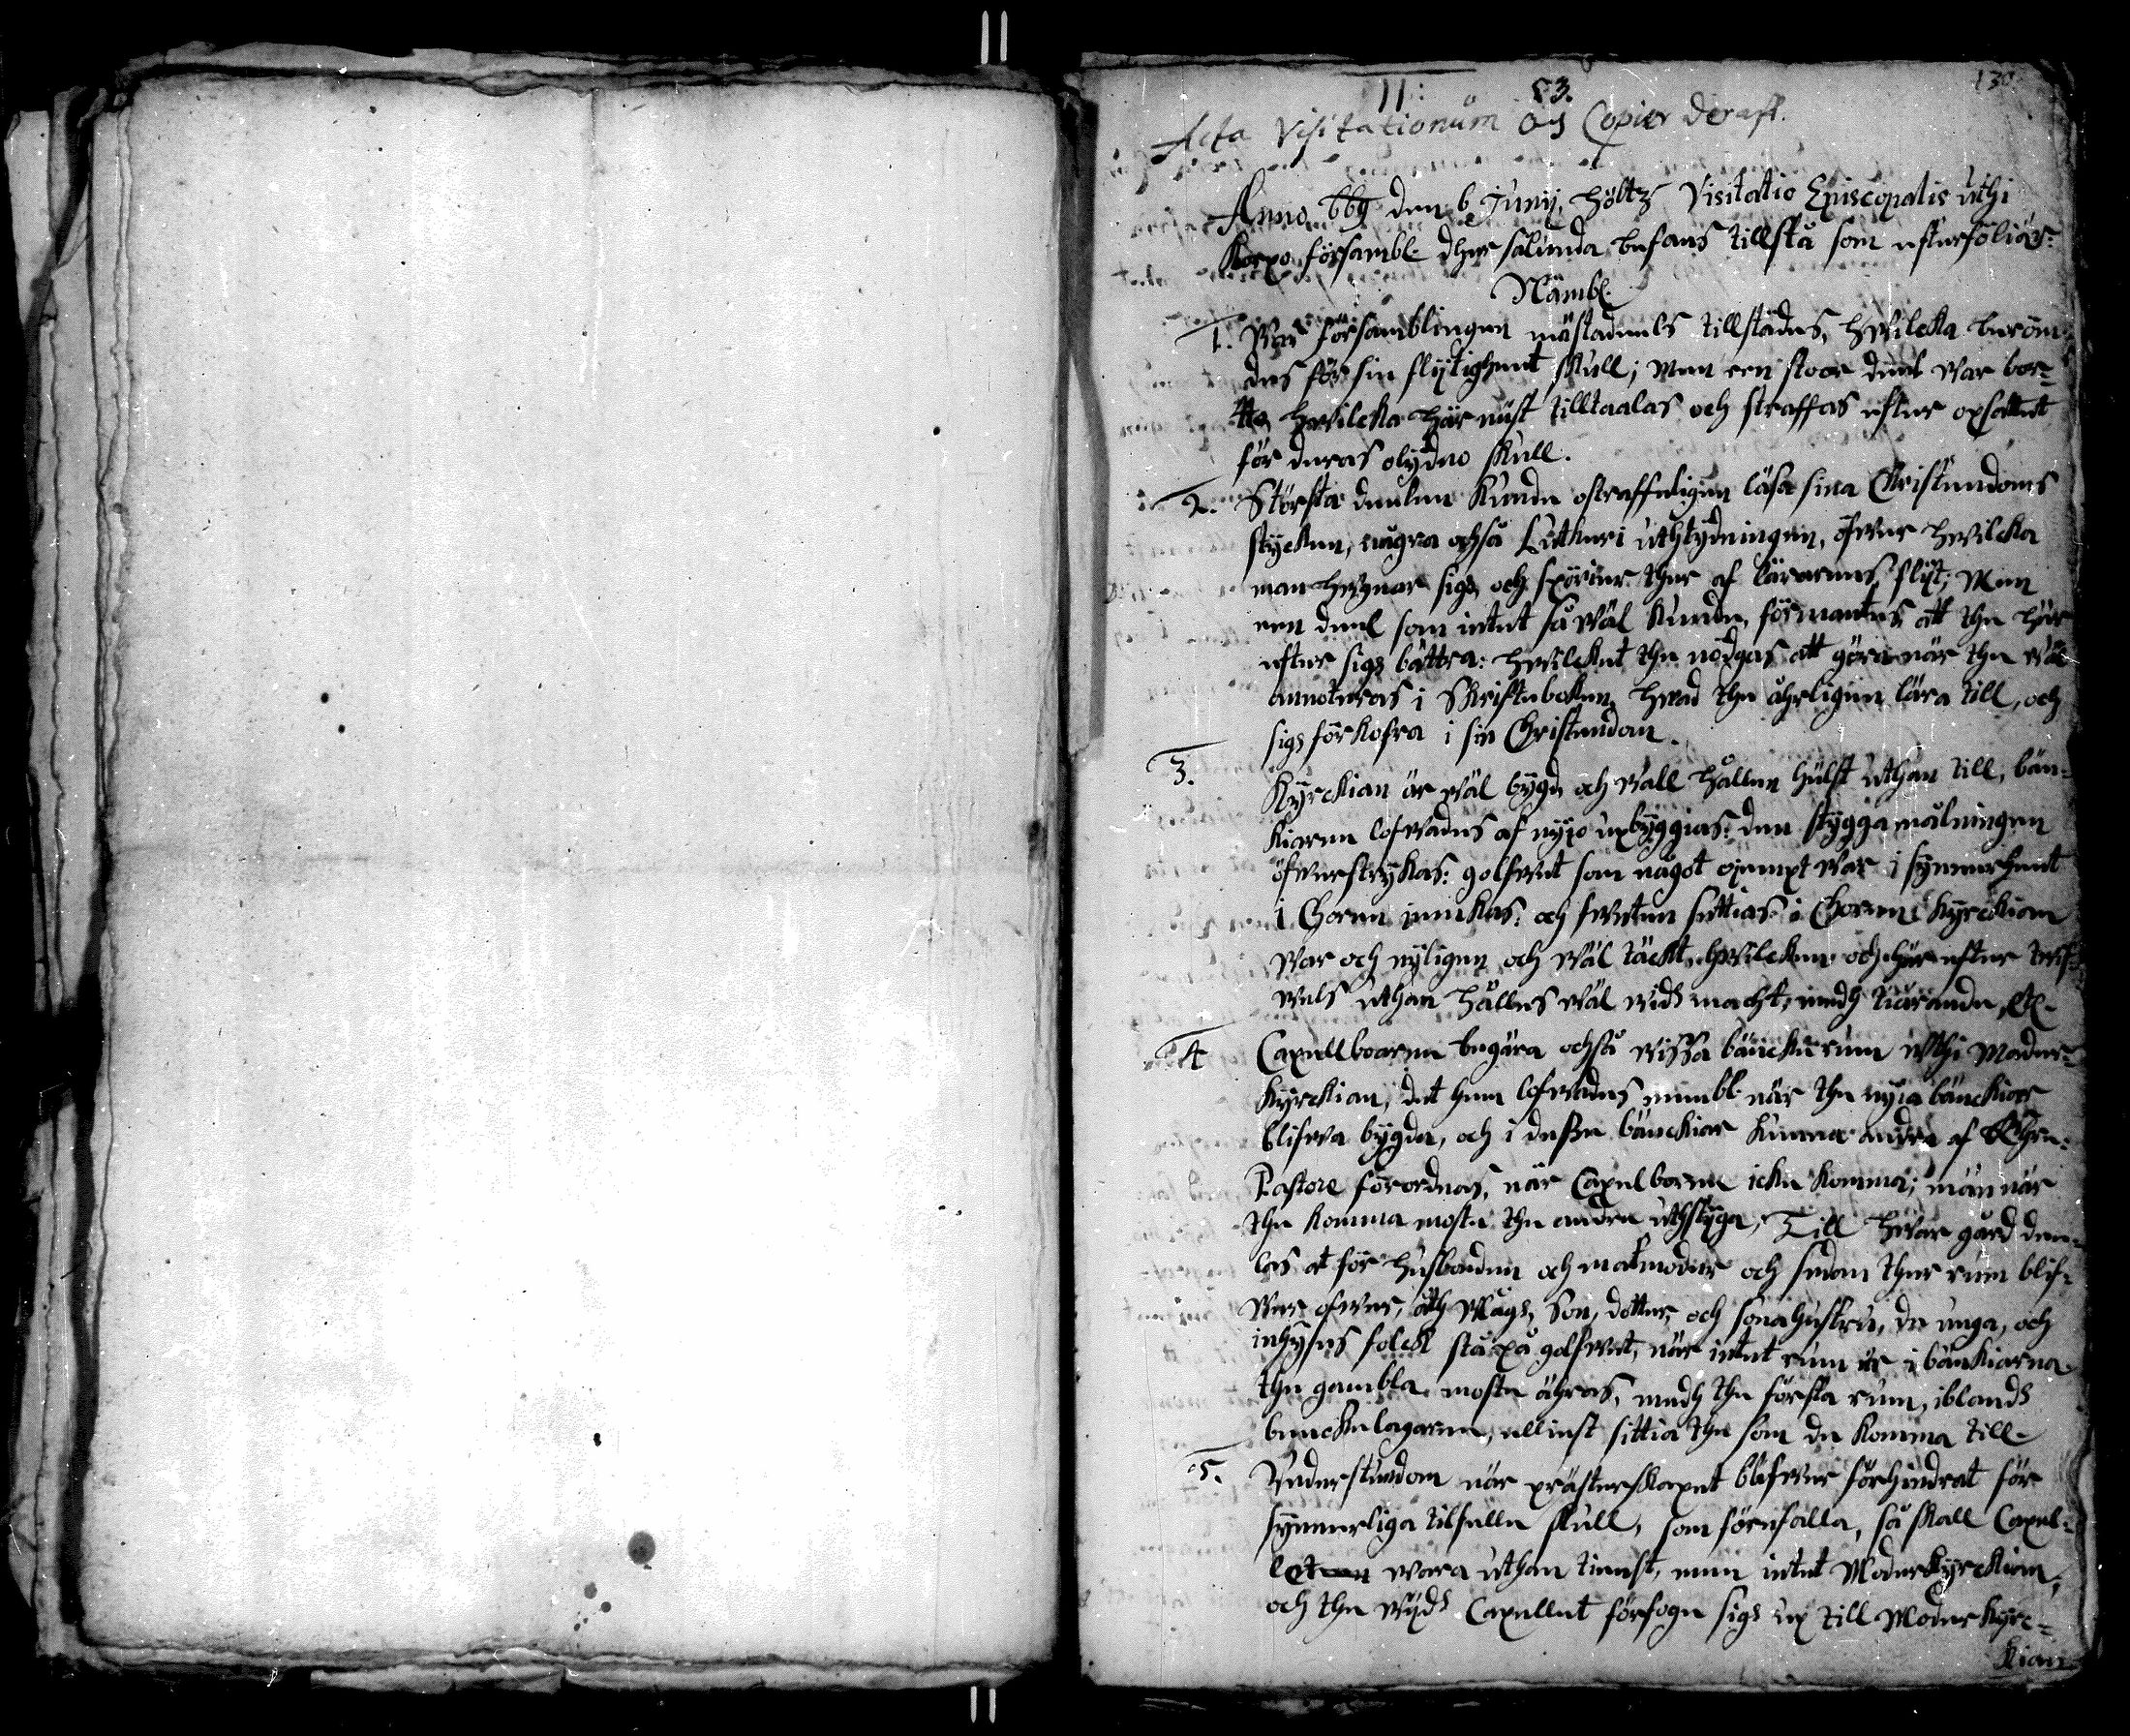 130.
II: 83.
Acta Visitationum och Copier deraff.
Anno 669 den 6 Junij, höltz Visitatio Episcopalis uthi
Korpo försambl. dher sålunda befans tillstå som efterföliäs:
Nämbl.
1. War församblingen mästadeels tillstädes, hwilcka beröm-
des för sin flijtigheet skull; Men een stoor deel war bor-
tto, hwilcka här näst tilltaalas och straffas efter opsattet
för deras olydno skull.
2. Största deelen kunde ostraffeligen läsa sina Christendoms
stycken, några ochså Lutheri uthtydningen, öfwer hwilcka
man hugnar sigh och spörier ther af lärarens flijt; Men
een deel som intet så wäl kunde, förmantes att the här
effter sigh bättra: hwilcket the nödgas att göra när the wäl
annoteras i Skrifteboken, hwad the åhrligen lära till, och
sigh förkofra i sin Christendom.
3. Kyrckian är wäl bygd och wäll hållen hälst uthan till, bän-
kiarne lofwades af nyio upbyggias: den stygga målningen
öfwerstrykas: golfwet som något ojempt war i synnerheet
i Choren jemkas: och swaten settias i Choren Kyrckian
war och nyligen och wäl täckt, hwilcken och här effter twif-
wels uthan hålles wäl widh macht, medh tiärande, etc.
4 Capellboarne begära ochså wissa bänckerum uthi Moder-
Kyrckian, det hem lofwades nembl. när the nyia bänckiar
blifwa bygde, och i desse bänckiar kunna andra af Ehre-
Pastore förordnas, när Capelborne icke komma; män när
the komma moste the andre uthstyga, Till hwar gård dee-
las at för husbonden och matmoder och sedan ther rum blif-
wer öfwer, åth Mågh, Son, dotter, och sonahustru, de unga, och
inhyses folck stå på golfwet, när intet rum är i bänkiarna
the gambla moste ähras, medh the första rum, iblandh
benckelagarne, ellinst sittia the som de komma till.
5. Understundom när prästerskapet blifwer förhindrat för
synnerliga tilfelle skull, som förefalla, så skall Capel-
let wara uthan tienst, men intet Moderkyrckian,
och the widh Capellet förfoge sigh up till Moder Kyrc-
kian